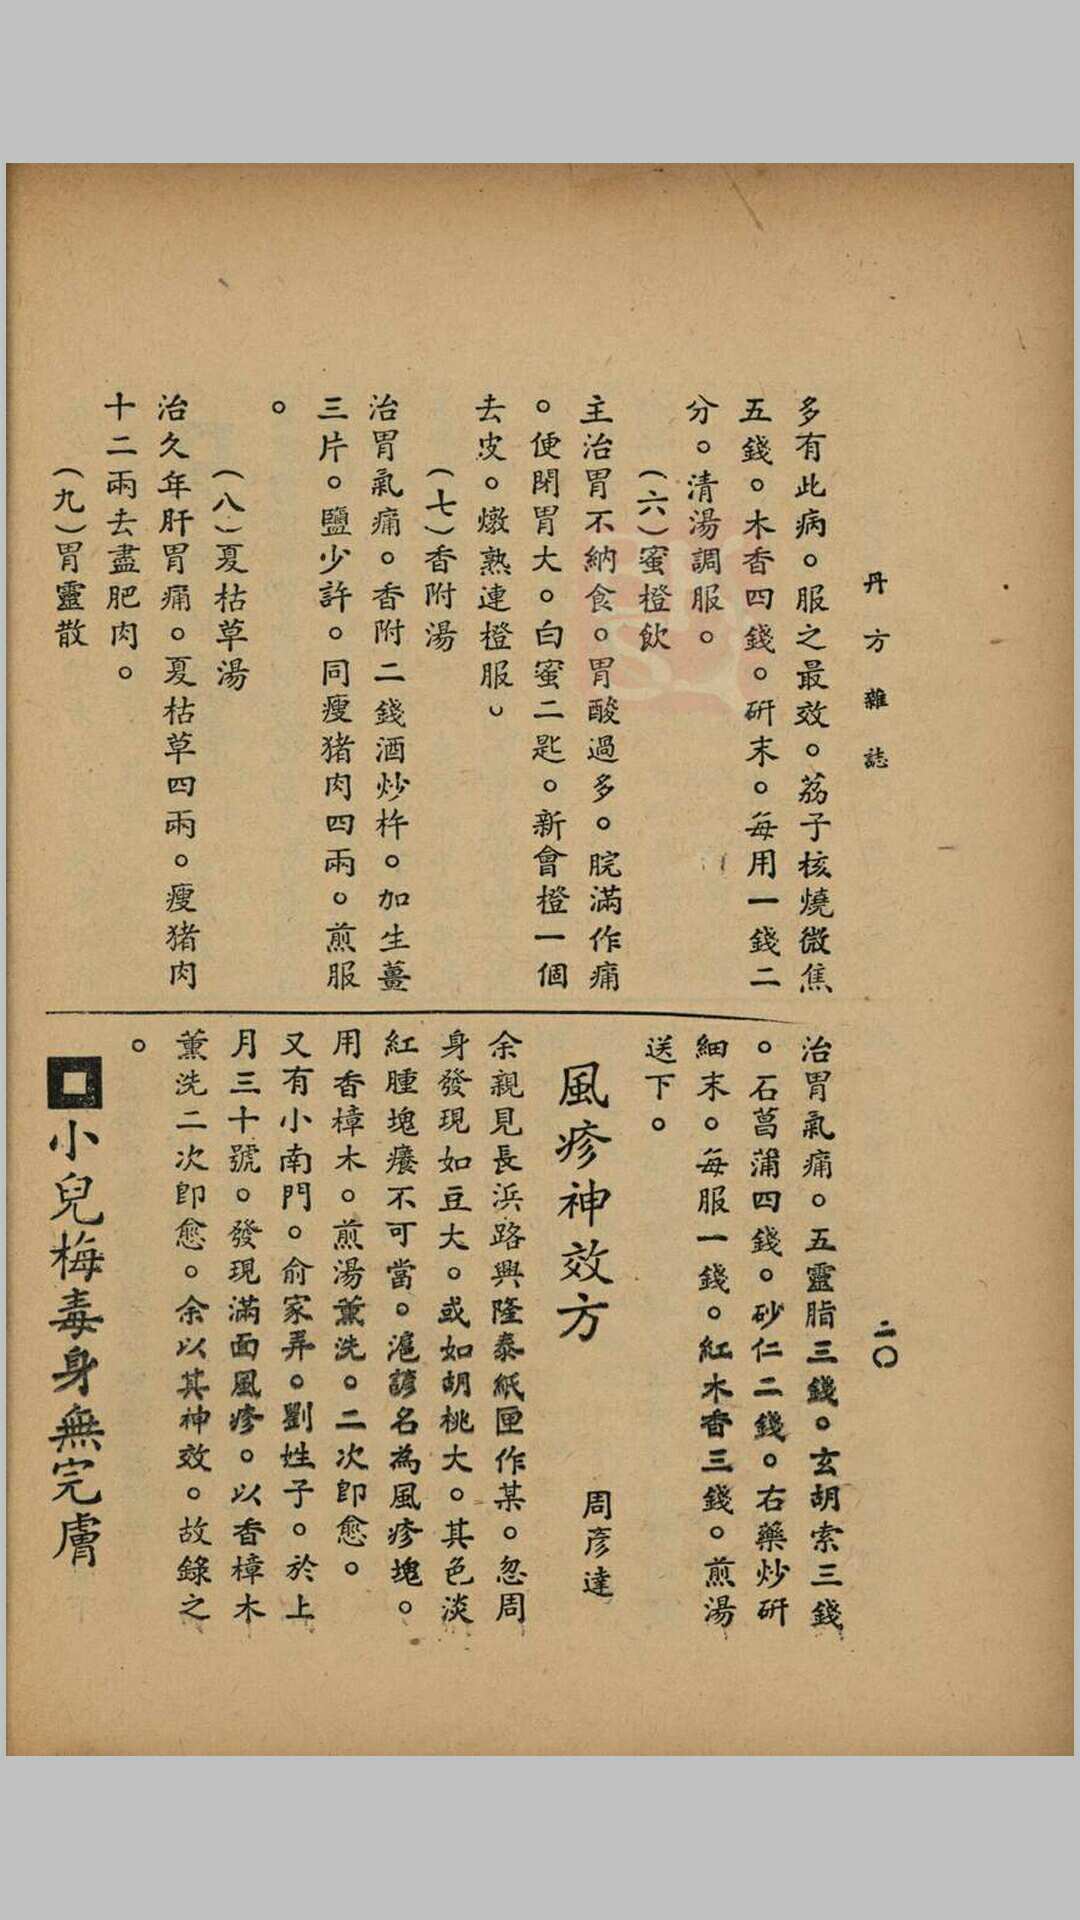 丹方雜誌
二〇
多有此病。服之最效。荔子核燒微焦
五錢。木香四錢。研末。每用一錢二
分。清湯調服。
(六)蜜橙飲
主治胃不納食。胃酸過多。脘滿作痛
。便閉胃大。白蜜二匙。新會橙一個
去皮。燉熟連橙服。
(七)香附湯
治胃氣痛。香附二錢酒炒杵。加生薑
三片。鹽少許。同瘦猪肉四兩。煎服
。
(八)夏枯草湯
治久年肝胃痛。夏枯草四兩。瘦猪肉
十二兩去盡肥肉。
(九)胃靈散
治胃氣痛。五靈脂三錢。玄胡索三錢
。石菖蒲四錢。砂仁二錢。右藥炒研
細末。每服一錢。紅木香三錢。煎湯
送下。
風疹神效方
周彦達
余親見長浜路興隆泰紙匣作某。忽周
身發現如豆大。或如胡桃大。其色淡
紅腫塊癢不可當。滬諺名為風疹塊。
用香樟木。煎湯薰洗。二次即愈。
又有小南門。俞家弄。劉姓子。於上
月三十號。發現滿面風疹。以香樟木
薰洗二次即愈。余以其神效。故錄之
。
小兒梅毒身無完膚